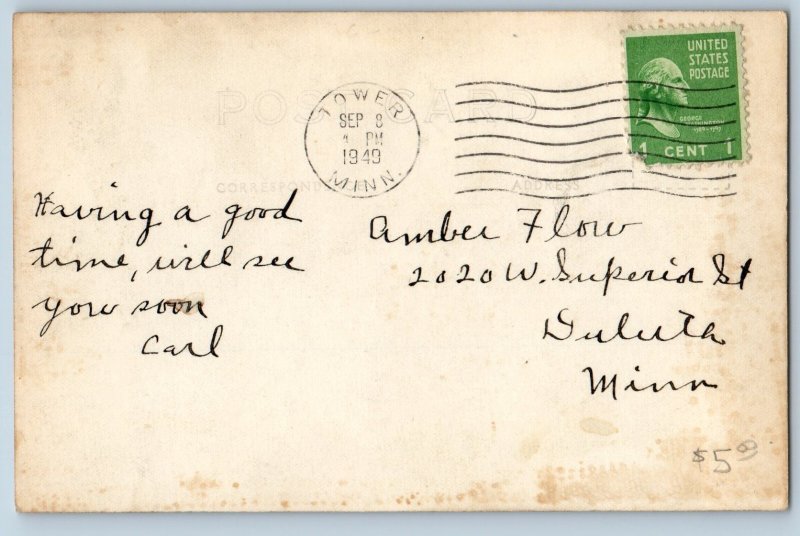 POST CARD
TOWER
SEP 8
PM
1949
MINN.
UNITED
STATES
POSTAGE
GEORGE
WASHINGTON
1789-1797
1 CENT 1
CORRESPONDENCE
ADDRESS
Having a good
time, will see
you soon
Carl
Amber Flow
2020 W. Superior St
Duluth
Minn
$5.00